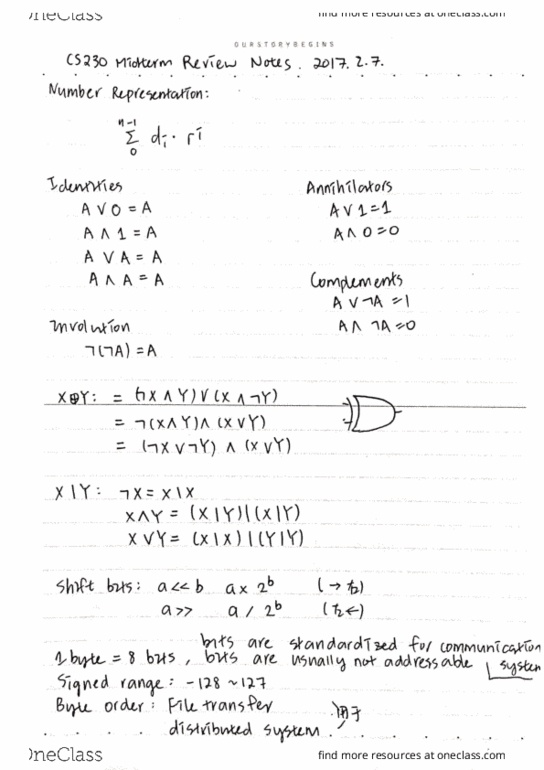 OneClass find more resources at oneclass.com
OURSTORYBEGINS
CS230 Midterm Review Notes. 2017. 2. 7.
Number Representation:
n-1
Σ di · ri
0
Identities Annihilators
A ∨ 0 = A A ∨ 1 = 1
A ∧ 1 = A A ∧ 0 = 0
A ∨ A = A
A ∧ A = A Complements
A ∨ ¬A = 1
Involution A ∧ ¬A = 0
¬(¬A) = A
X⊕Y: = (¬X ∧ Y) ∨ (X ∧ ¬Y)
= ¬(X∧Y) ∧ (X ∨ Y)
= (¬X ∨ ¬Y) ∧ (X ∨ Y)
X | Y: ¬X = X | X
X∧Y = (X|Y)|(X|Y)
X ∨ Y = (X|X)|(Y|Y)
Shift bits: a << b a × 2ᵇ
a >> a / 2ᵇ
bits are standardized for communication
1 byte = 8 bits, bits are usually not addressable system
Signed range: -128 ~ 127
Byte order: File transfer
distributed system.
OneClass find more resources at oneclass.com